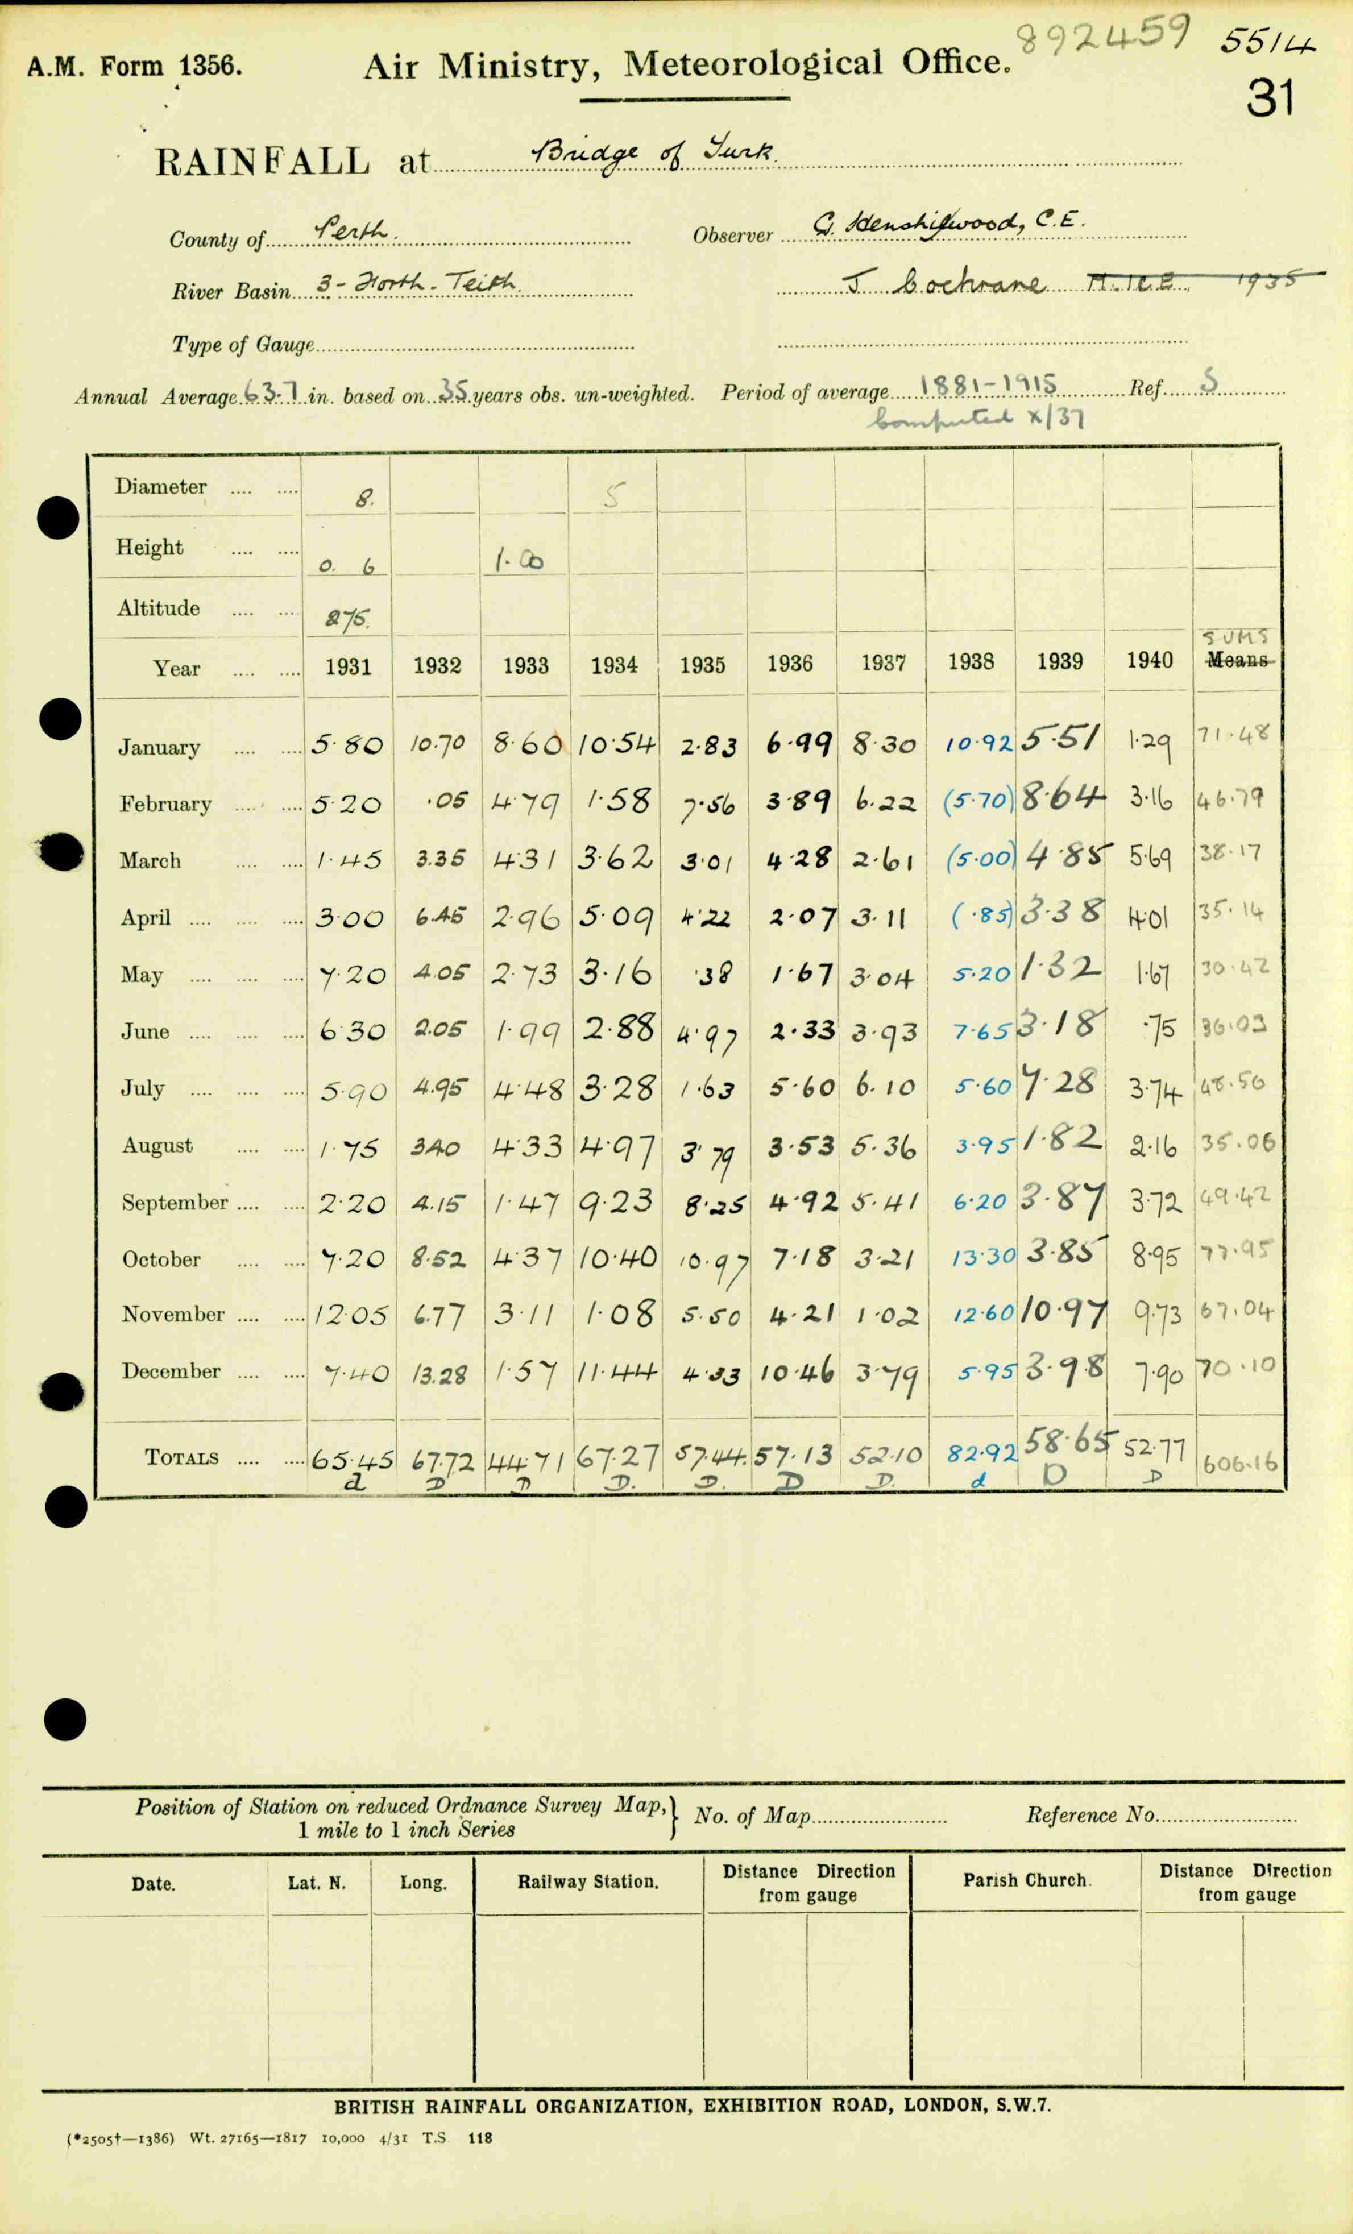 892459 5514
A.M. Form 1356. Air Ministry, Meteorological Office.
31
RAINFALL at Bridge of Turk.
County of Perth. Observer G. Henshilwood, C.E.
River Basin 3 - Forth - Teith J Cochrane M.I.C.E. 1935
Type of Gauge
Annual Average 63.7 in. based on 35 years obs. un-weighted. Period of average 1881-1915 Ref. S
Computed X/37
Diameter .... .... 8. 5
Height .... .... 0. 6 1.00
Altitude .... .... 275.
SUMS
Year .... .... 1931 1932 1933 1934 1935 1936 1937 1938 1939 1940 Means
January .... .... 5.80 10.70 8.60 10.54 2.83 6.99 8.30 10.92 5.51 1.29 71.48
February .... .... 5.20 .05 4.79 1.58 7.56 3.89 6.22 (5.70) 8.64 3.16 46.79
March .... .... 1.45 3.35 4.31 3.62 3.01 4.28 2.61 (5.00) 4.85 5.69 38.17
April .... .... .... 3.00 6.45 2.96 5.09 4.22 2.07 3.11 (.85) 3.38 4.01 35.14
May .... .... .... 7.20 4.05 2.73 3.16 .38 1.67 3.04 5.20 1.32 1.67 30.42
June .... .... .... 6.30 2.05 1.99 2.88 4.97 2.33 3.93 7.65 3.18 .75 36.03
July .... .... .... 5.90 4.95 4.48 3.28 1.63 5.60 6.10 5.60 7.28 3.74 48.56
August .... .... 1.75 3.40 4.33 4.97 3.79 3.53 5.36 3.95 1.82 2.16 35.06
September .... .... 2.20 4.15 1.47 9.23 8.25 4.92 5.41 6.20 3.87 3.72 49.42
October .... .... 7.20 8.52 4.37 10.40 10.97 7.18 3.21 13.30 3.85 8.95 77.95
November .... .... 12.05 6.77 3.11 1.08 5.50 4.21 1.02 12.60 10.97 9.73 67.04
December .... .... 7.40 13.28 1.57 11.44 4.33 10.46 3.79 5.95 3.98 7.90 70.10
TOTALS .... .... 65.45 67.72 44.71 67.27 57.44. 57.13 52.10 82.92 58.65 52.77 606.16
d D D D. D. D D. d D D
Position of Station on reduced Ordnance Survey Map, } No. of Map Reference No.
1 mile to 1 inch Series
Date. Lat. N. Long. Railway Station. Distance Direction from gauge Parish Church. Distance Direction from gauge
BRITISH RAINFALL ORGANIZATION, EXHIBITION ROAD, LONDON, S.W.7.
(*2505†—1386) Wt. 27165—1817 10,000 4/31 T.S. 118